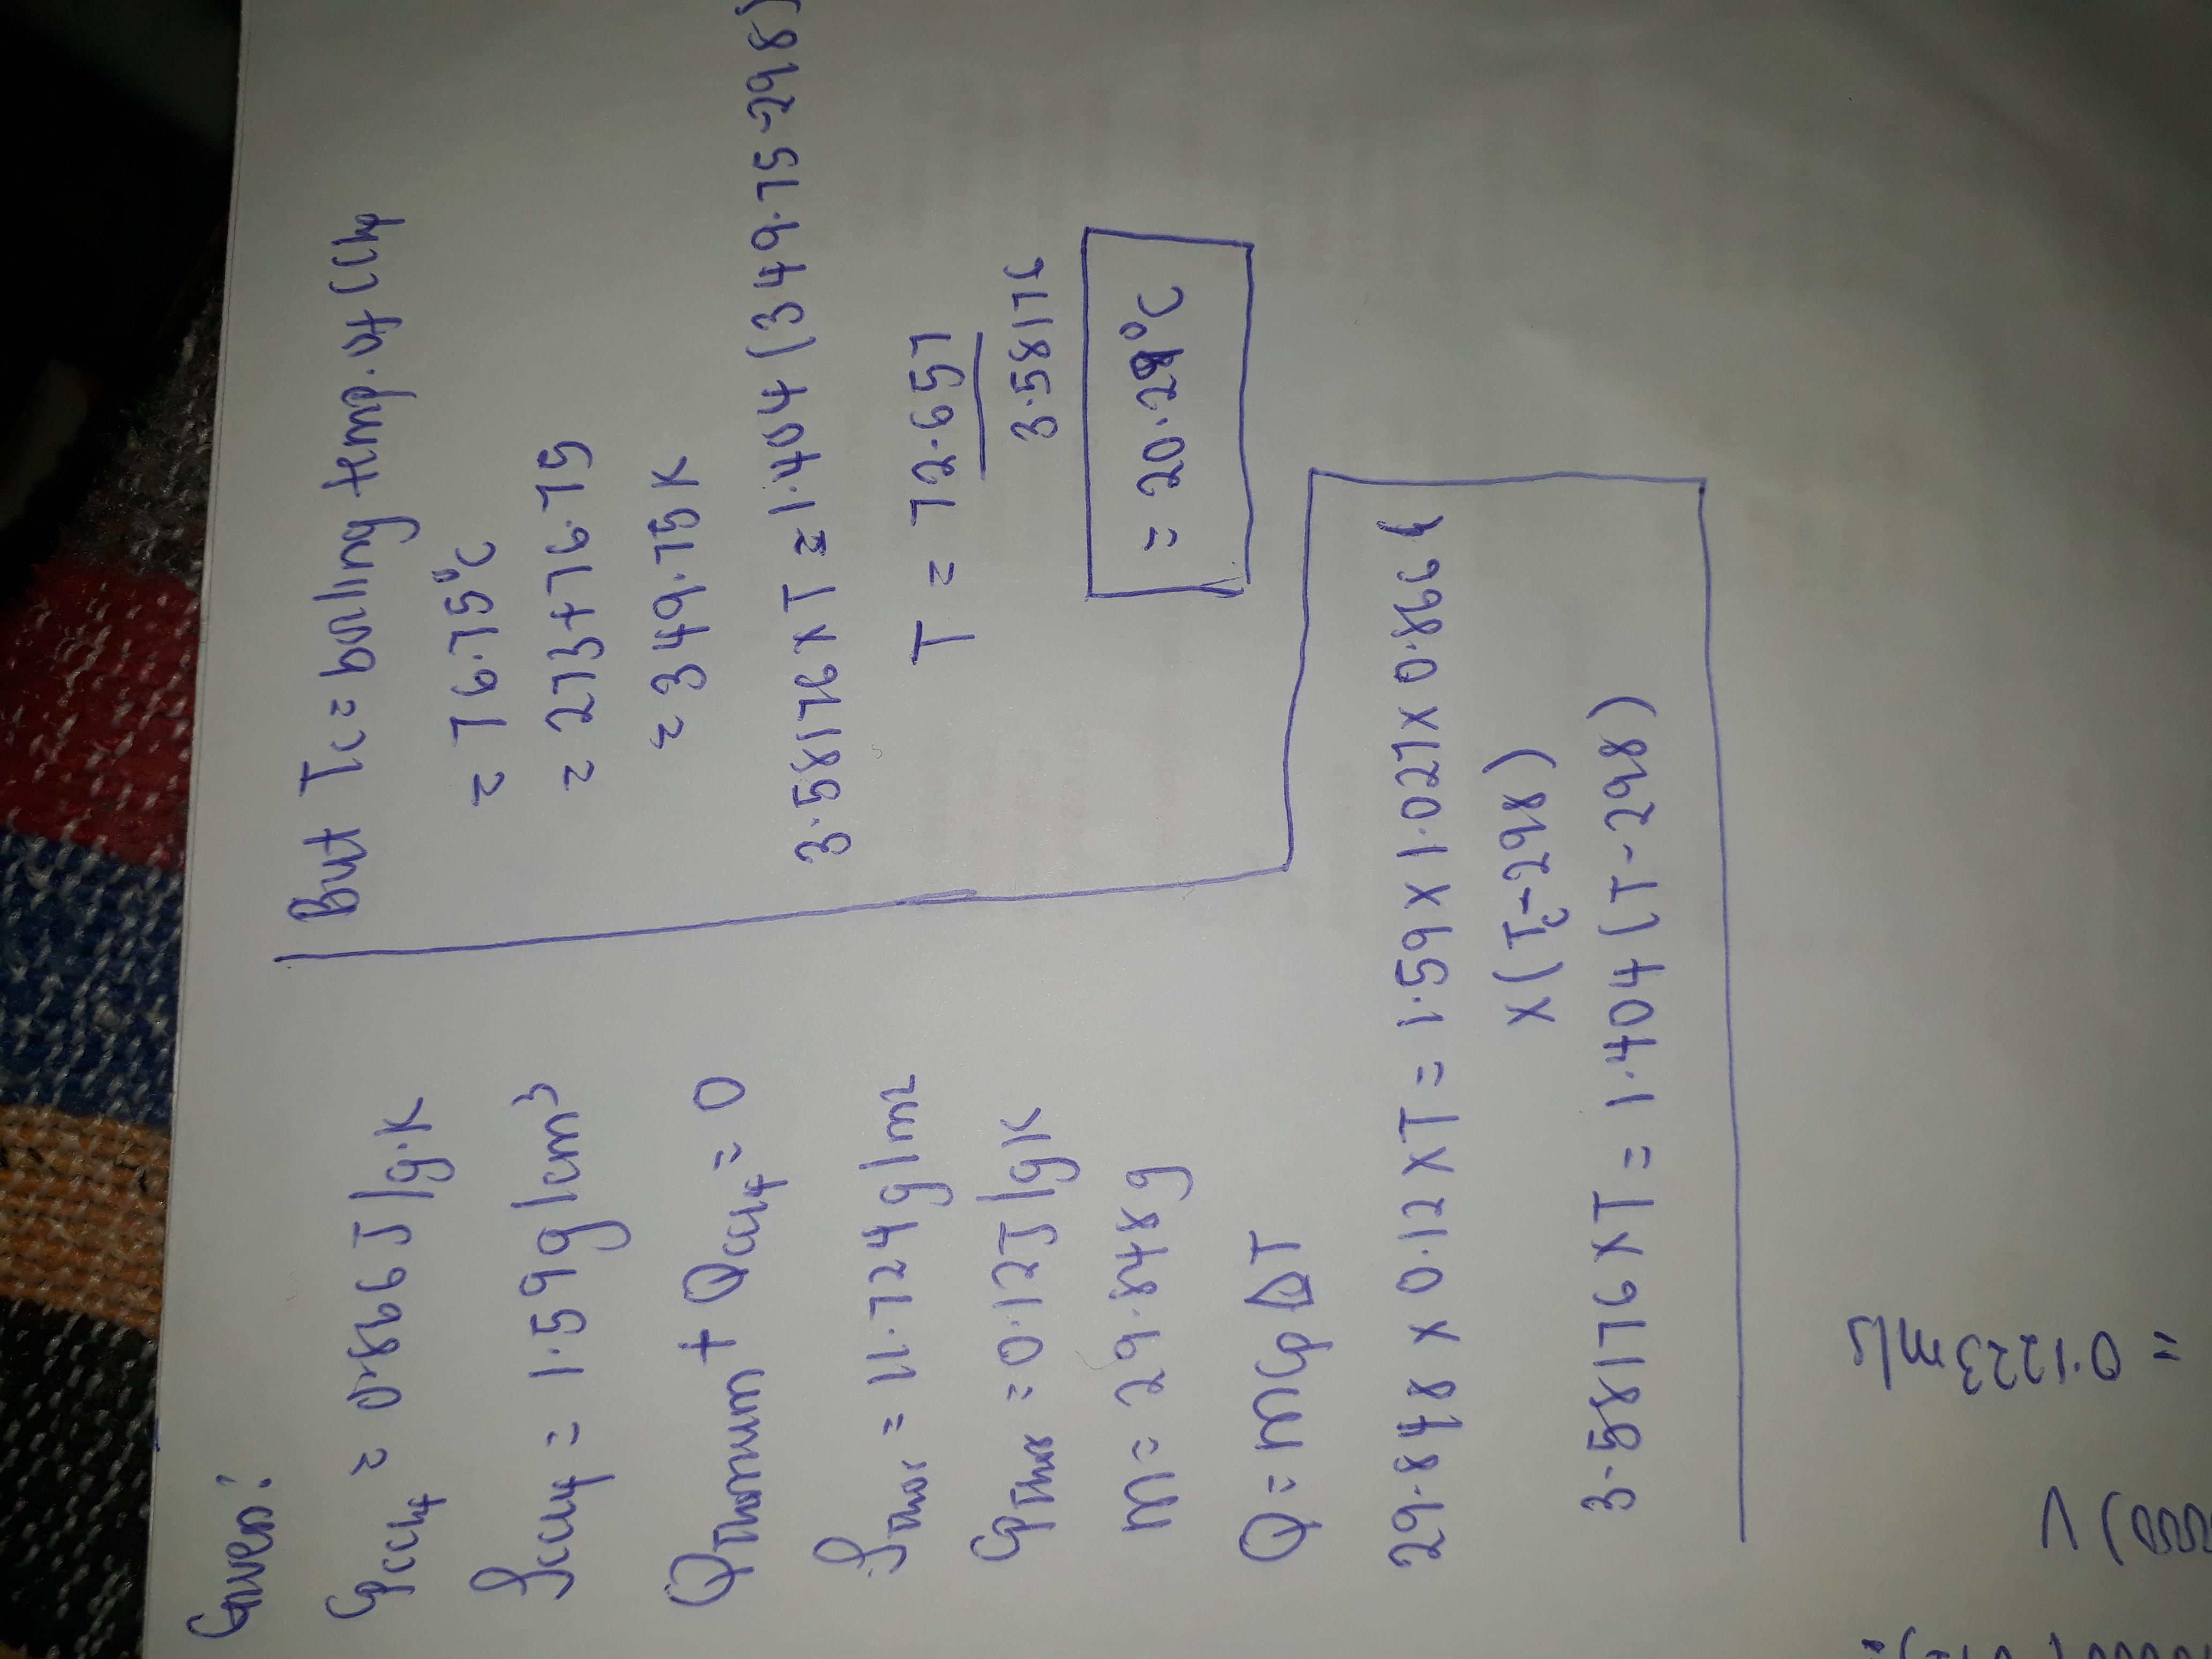 Given:
CpCCl4 = 0.866 J/g.K
ρCCl4 = 1.59 g/cm3
QThorium + QCCl4 = 0
ρThor = 11.724 g/m2
CpThor = 0.12 J/gK
m = 29.848 g
Q = mCp ΔT
29.848 x 0.12 x T = 1.59 x 1.027 x 0.866 (
x (Tc-298)
3.58176 x T = 1.404 (T-298)
But Tc = boiling temp. of CCl4
= 76.75°C
= 273+76.75
= 349.75 K
3.58176 x T = 1.404 (349.75-298)
T = 72.657
3.58176
= 20.28°C
= 0.1223 m/s